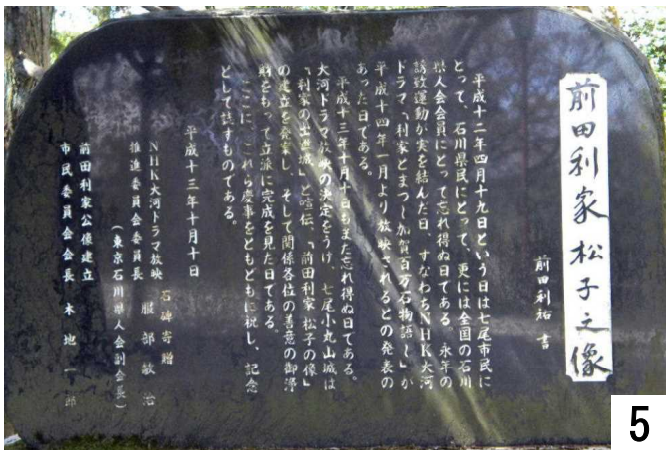 前田利家松子之像
前田利祐 書
平成十二年四月十九日という日は七尾市民に
とって、石川県民にとって、更には全国の石川
県人会会員にとって忘れ得ぬ日である。永年の
誘致運動が実を結んだ日、すなわちNHK大河
ドラマ「利家とまつ〜加賀百万石物語〜」が
平成十四年一月より放映されるとの発表の
あった日である。
平成十三年十月十日もまた忘れ得ぬ日である。
大河ドラマ放映の決定をうけ、七尾小丸山城は
「利家の出世城」と喧伝、「前田利家松子の像」
の建立を発案し、そして関係各位の善意の御浄
財をもって立派に完成を見た日である。
ここに、これら慶事をともどもに祝し、記念
として誌すものである。
平成十三年十月十日
石碑寄贈
NHK大河ドラマ放映
推進委員会委員長 服部敏治
(東京石川県人会副会長)
前田利家公像建立
市民委員会会長 木地一郎
5